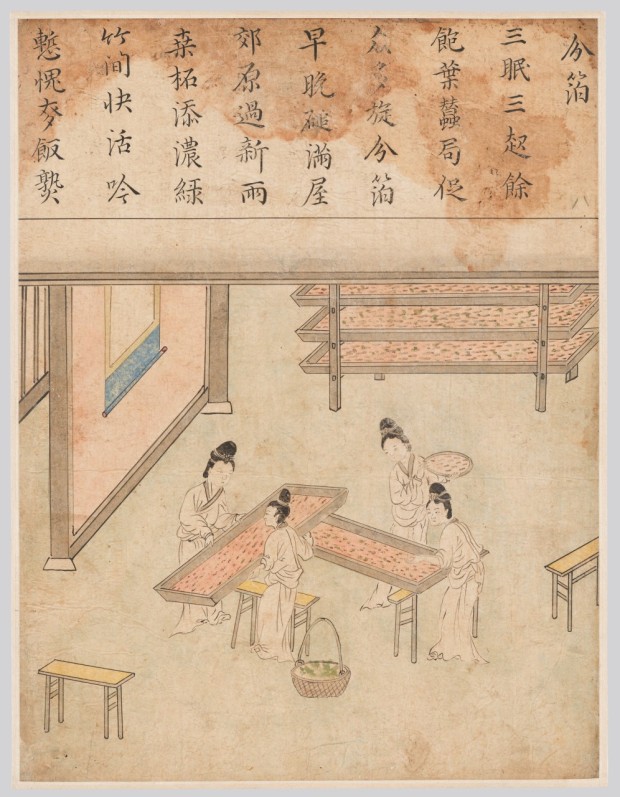 分箔
八
三眠三起餘
飽葉蠶局促
衆多旋分箔
早晚磓滿屋
郊原過新雨
桒柘添濃綠
竹間快活吟
慙愧麥飯熟